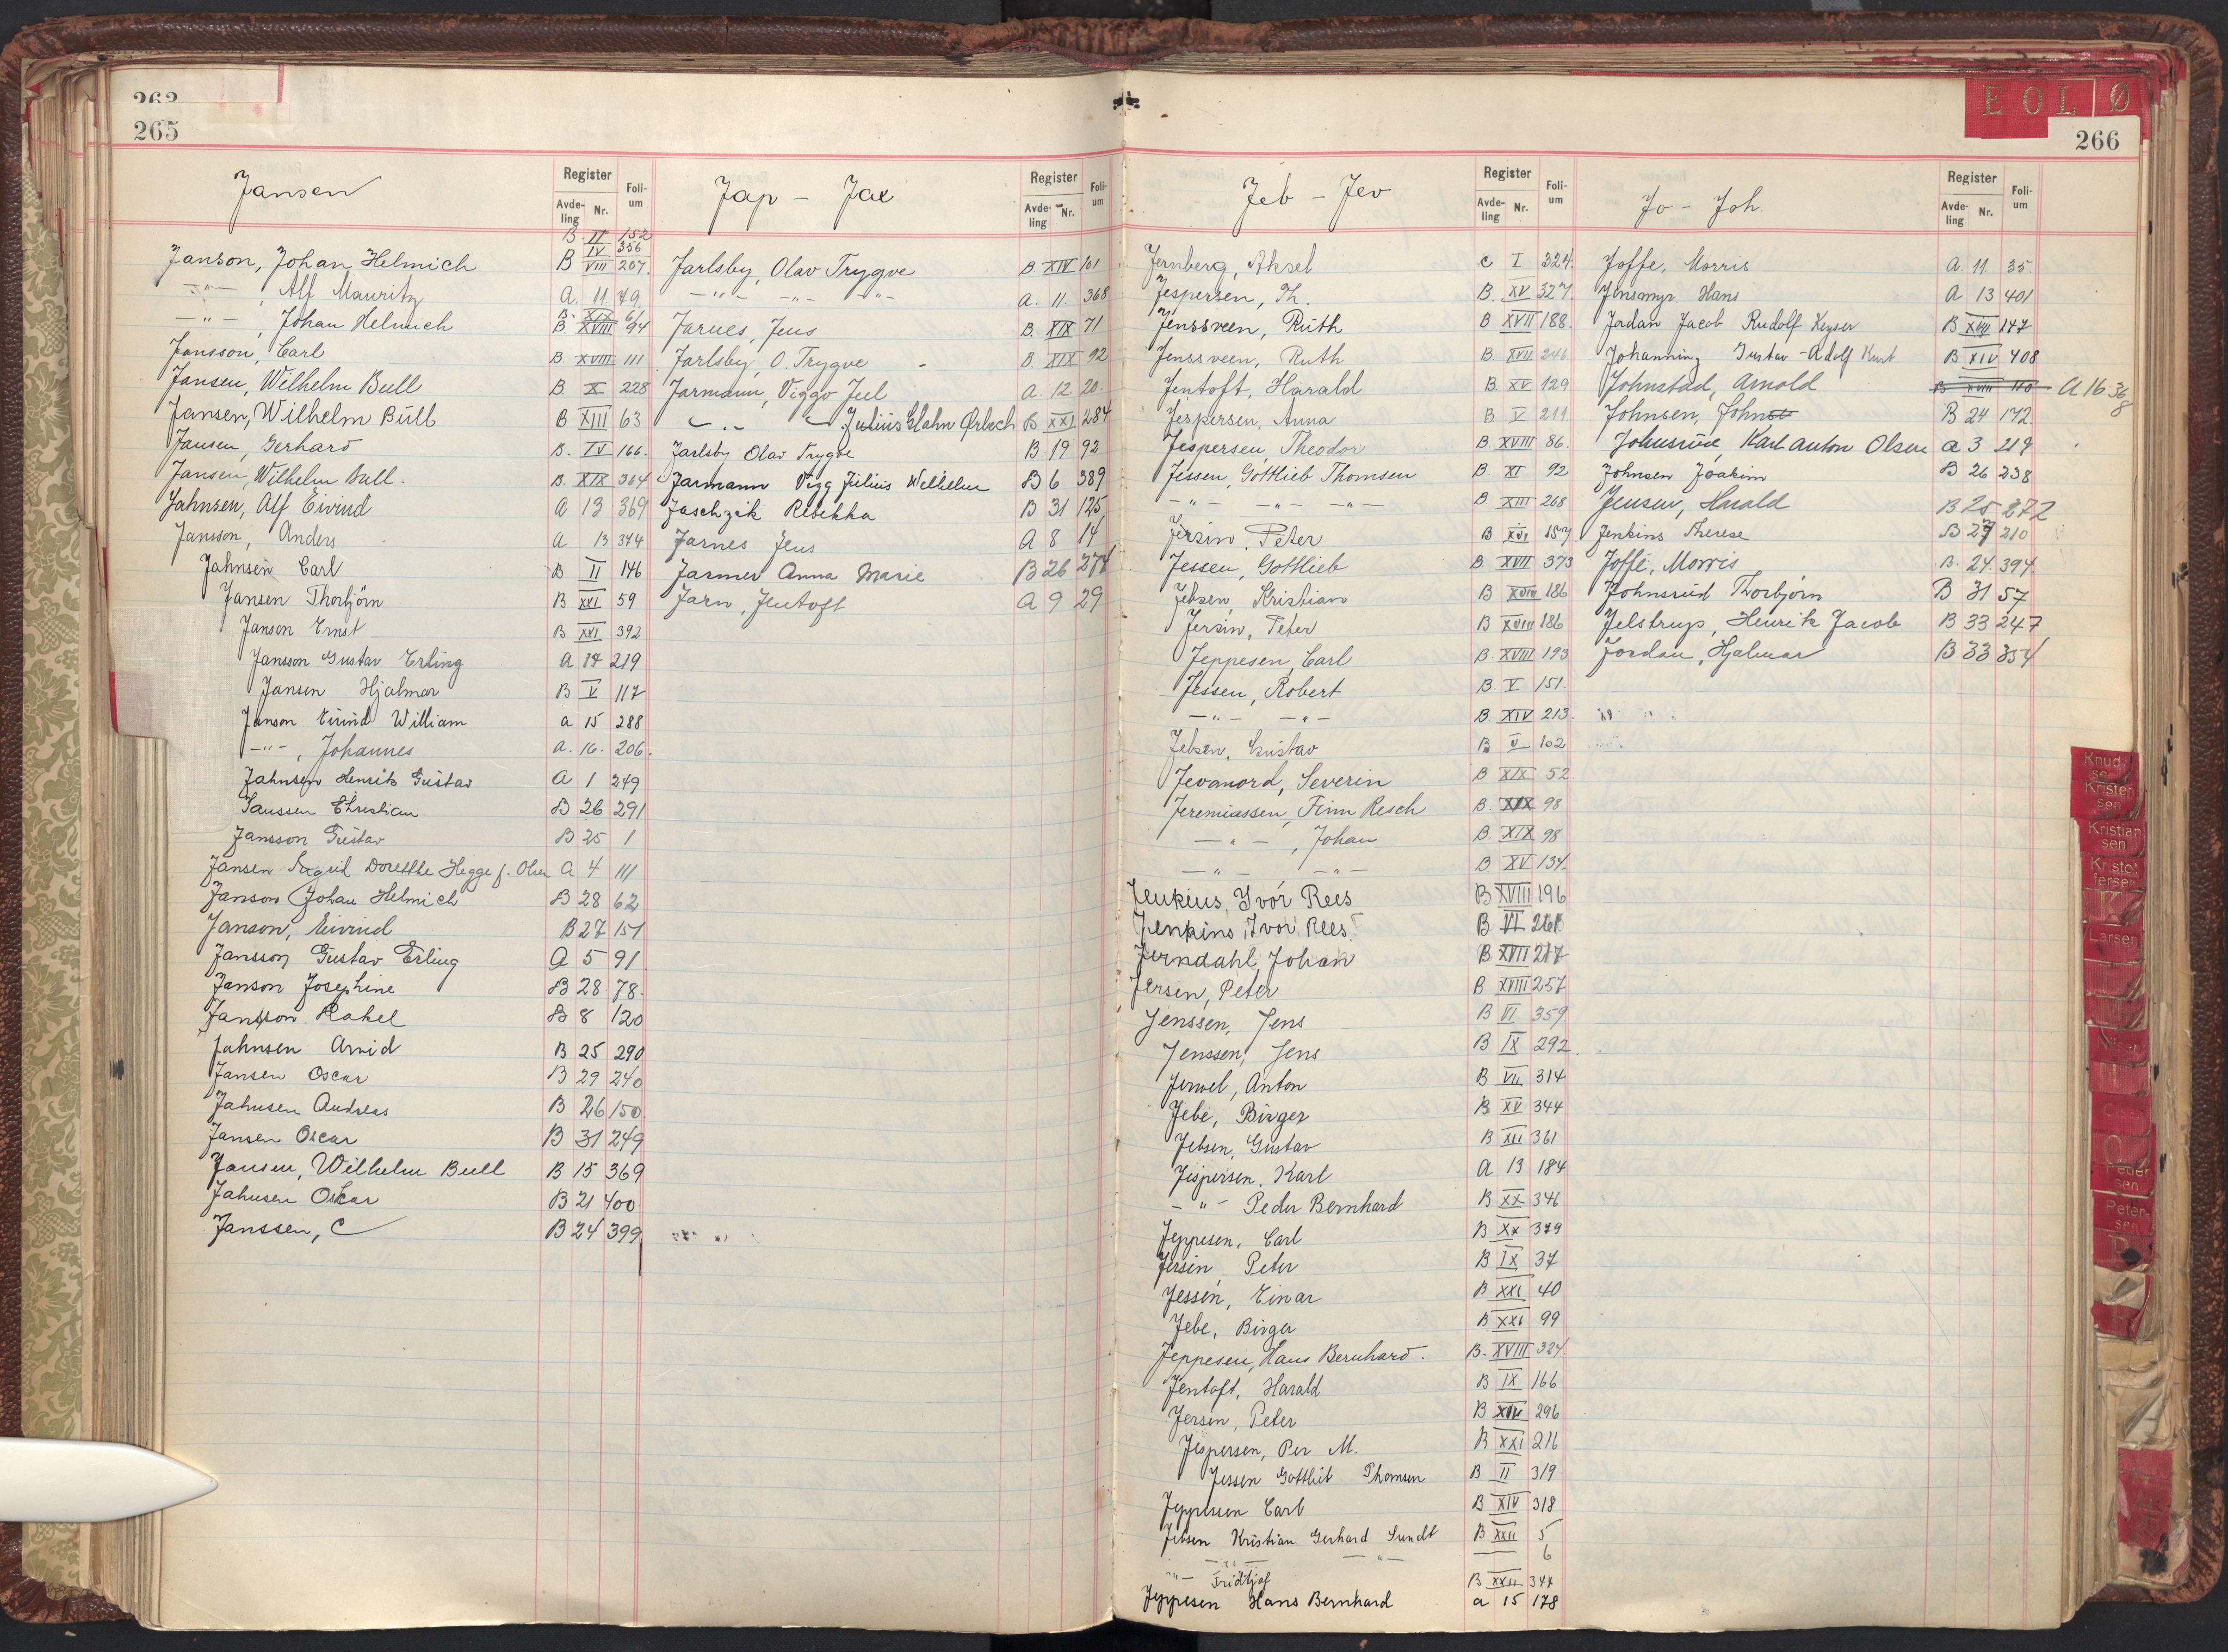 263
265
Jansen
Register
Avdeling Nr. Folium
B. II 152
B IV 356
Janson, Johan Helmich B VIII 207.
—"— , Alf Mauritz A. 11 49.
B. XIX 61
—"— , Johan Helmich B. XVIII 94
Jansson, Carl B. XVIII 111
Jansen, Wilhelm Bull B. X 228
Jansen, Wilhelm Bull B XIII 63
Jansen, Gerhard B. IV 166.
Jansen, Wilhelm Bull. B. XIX 364
Jahnsen, Alf Eivind A 13 369
Jansson, Anders A 13 374
Jahnsen Carl B II 146
Jansen Thorbjörn B XVI 59
Janson Ernst B XVI 392
Jansson Gustav Erling A 14 219
Jansen Hjalmar B V 117
Janson Eivind William a 15 288
—"— , Johannes a. 16. 206.
Jahnsen Henrik Gustav A 1 249
Janssen Christian B 26 291
Jansson Gustav B 25 1
Jansen Sagrid Dorethe Hegge f. Olsen A 4 111
Janson Johan Helmich B 28 62
Janson, Eivind B 27 151
Jansson Gustav Erling A 5 91
Janson Josephine B 28 78.
Jansson Rakel B 8 120
Jahnsen Arvid B 25 290
Jansen Oscar B 29 240
Jahnsen Andreas B 26 150
Jansen Oscar B 31 249
Jansen, Wilhelm Bull B 15 369
Jahnsen Oskar B 21 400
Janssen, C B 24 399
Jap – Jae
Register
Avdeling Nr. Folium
Jarlsby, Olav Trygve B. XIV 101
—"— —"— —"— A. 11. 368
Jarnes, Jens B. XIX 71
Jarlsby, O. Trygve B. XIX 92
Jarmann, Viggo Juel A. 12. 20.
—"— Julius Glahn Ørbech B XXI 284
Jarlsby Olav Trygve B 19 92
Jarmann Vigg Julius Wilhelm B 6 389
Jaschzik Rebekka B 31 125
Jarnes Jens A 8 14
Jarmer Anna Marie B 26 274
Jarn, Jentoft A 9 29
E O L Ø
266
Jeb – Jev
Register
Avdeling Nr. Folium
Jernberg, Aksel C I 324.
Jespersen, Th. B. XV 327.
Jenssveen, Ruth B XVII 188.
Jenssveen, Ruth B. XVII 246
Jentoft, Harald B. XV 129
Jespersen, Anna B V 211
Jespersen, Theodor B. XVIII 86.
Jessen, Gottlieb Thomsen B. XI 92
—"— —"— —"— B. XIII 268
Jersin, Peter B XVI 157
Jessen, Gottlieb B. XVII 373
Jebsen, Kristian B XVIII 186
Jersin, Peter B XVIII 186
Jeppesen, Carl B. XVIII 193
Jessen, Robert B. V 151.
—"— —"— B. XIV 213.
Jebsen, Gustav B V 102
Jevanord, Severin B XIX 52
Jeremiassen, Finn Resch B. XIX 98
—"— , Johan B. XIX 98
—"— —"— B XV 134.
Jenkins, Yvor Rees B XVIII 196
Jenkins, Ivor Rees. B VI 261
Jerndahl, Johan B XVII 217
Jersin, Peter B XVIII 257
Jenssen, Jens B VI 359
Jenssen, Jens B IX 292.
Jerwel, Anton B VII 314
Jebe, Birger B XV 344
Jebsen, Gustav B XII 361
Jespersen, Karl A 13 184
—"— Peder Bernhard B XX 346
Jeppesen, Carl B XX 379
Jersin, Peter B IX 37
Jessen, Einar B XXI 40
Jebe, Birger B XXI 99
Jeppesen, Hans Bernhard. B. XVIII 324
Jentoft, Harald B IX 166
Jersin, Peter B 296
Jespersen, Per M. B XXI 216
Jessen Gottlieb Thomsen B II 319
Jeppesen Carl B XIV 318
Jebsen Kristian Gerhard Sundt B XXII 5
—"— —"— 6
—"— Fridtjof B XXII 344
Jeppesen Hans Bernhard a 15 178
Jo – Joh.
Register
Avdeling Nr. Folium
Joffe, Morris A. 11. 35.
Jensmyr Hans A 13 401
Jadan Jacob Rudolf Keyser B XVIII 147
Johanning Gustav-Adolf Kurt B XIV 408
Johnstad, Arnold B XVIII 110 A 16 368
Johnsen, John B 24 172.
Johnsrud, Karl Anton Olsen a 3 219
Johnsen Joakim B 26 238
Jensen, Harald B 25 272
Jenkins Therese B 27 210
Joffe, Morris B. 24. 394.
Johnsrud Thorbjørn B 31 57
Jelstrup, Henrik Jacob B 33 247
Jordan, Hjalmar B 33 354
Knudsen
Kristensen
Kristiansen
Kristoffersen
K
Larsen
Pedersen
Petersen